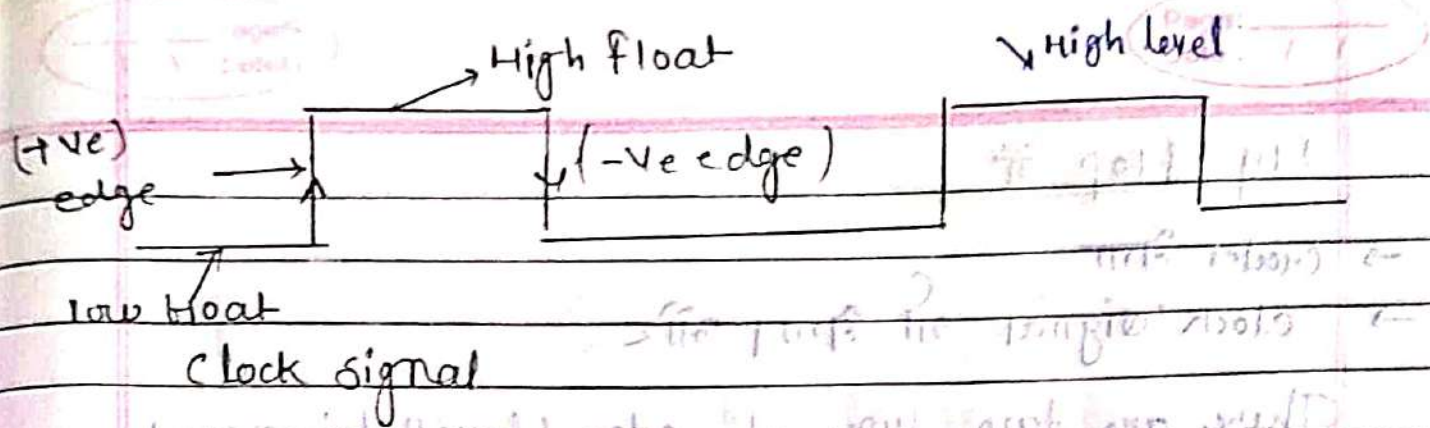 High float
High level
(+ve)
edge
(-ve edge)
low float
Clock signal